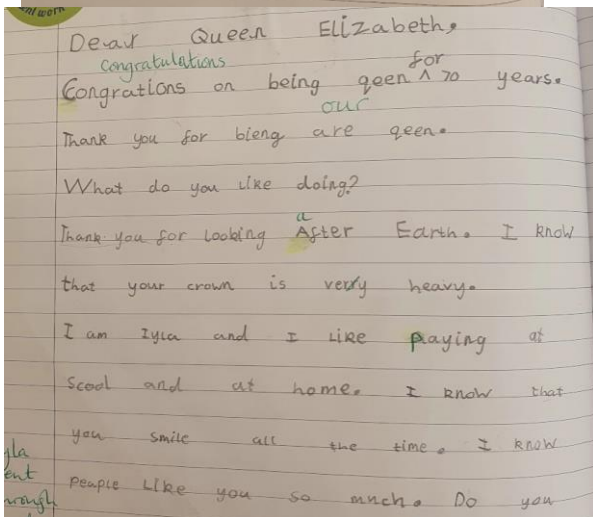 ent work
Dear Queen Elizabeth,
Congratulations
for
Congrations on being qeen ^ 70 years.
our
Thank you for bieng are qeen.
What do you like doing?
a
Thank you for looking After Earth. I know
that your crown is verry heavy.
I am Iyla and I like paying at
Scool and at home. I know that
you smile all the time. I know
yla
ent
peaple like you so much. Do you
hrough